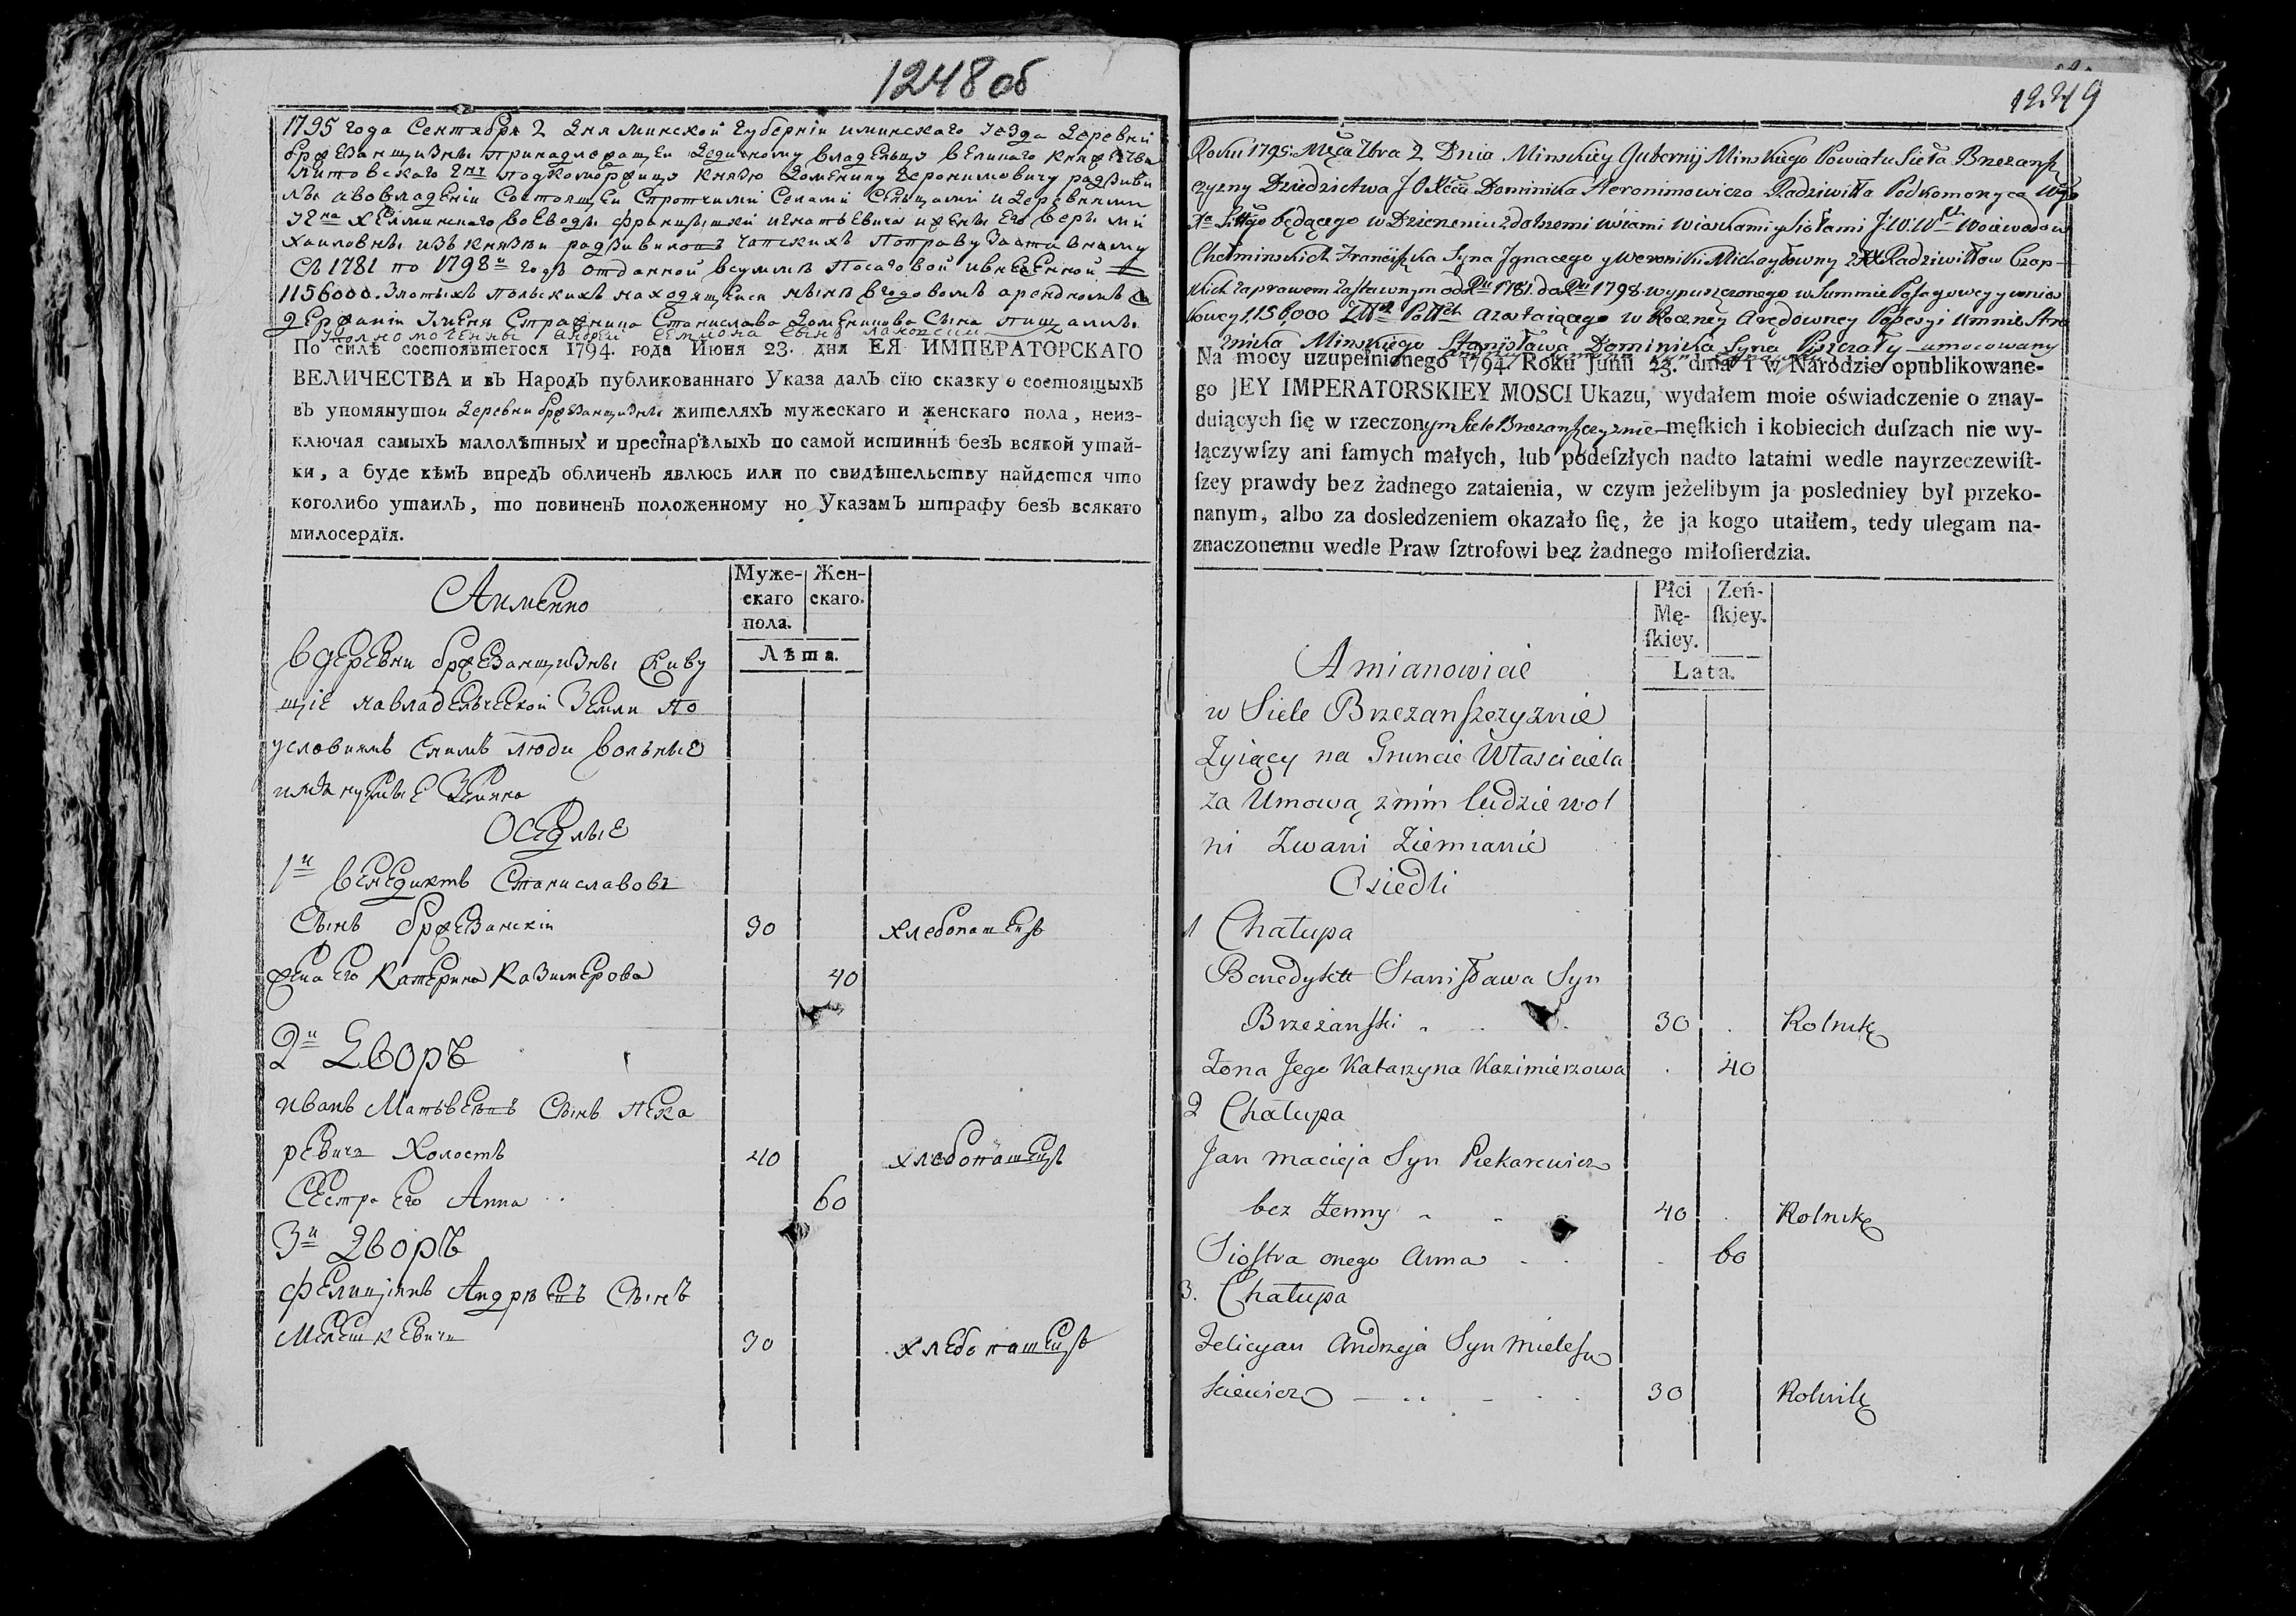 1248об
1795 года Сентября 2 дня Минской губернiи иминского уезда деревни
бржезанщизны принадлежащей дедичному владельцу великаго княжества
литовского подкоморжицу князю доменику Iеронимовичу радзивил
лу авовладенiи Состоящей Спротчими Селами Сельцами и деревнями
хелминского воеводы францишки игнатьевича ижены его верони Ми
хаиловны изъ князей радзивиловъ чапскихъ поправу заставному
Съ 1781 по 1798й годъ отданной всумме посаговой ивнесенной
1156000. Злотыхъ польскихъ находящейся ныне вгодовомъ арендномъ
держанiи Стражника Станислава доменикова Сына пищаллы.
уполномоченны андрей Семiона Сынъ
По силѣ состоявшегося 1794. года Июня 23. дня ЕЯ ИМПЕРАТОРСКАГО
ВЕЛИЧЕСТВА и въ Народъ публикованнаго Указа далъ сїю сказку о состоящыхъ
въ упомянутои деревни бржезанщизны жителяхъ мужескаго и женскаго пола, неиз-
ключая самыхъ малолѣтныхъ и престарѣлыхъ по самой истиннѣ безъ всякой утай-
ки, а буде кѣмъ впредъ обличенъ явлюсь или по свидѣтельству найдется что
коголибо утаилъ, то повиненъ положенному но Указамъ штрафу безъ всякаго
милосердїя.
Аименно
Муже-
скаго
пола.
Жен-
скаго.
Лѣта.
вдеревни бржезанщизны живу
щiе навладельческой земли по
условиямъСнимъ люди вольные
Оседлые
1й венедиктъ Станиславовъ
Сынъ бржезанскiй 30 хлебопашецъ
жена его Катерина Казимерова 40
2й дворъ
иванъ Матвеевъ Сынъ пека
ревичъ Холостъ 40 хлебопашецъ
Сестра его Анна 60
3й дворъ
фелицiянъ Андреевъ Сынъ
Мелешкевичъ 30 хлебопашецъ
1249
Roku 1795. Mca 7bra 2 Dnia Minskiey Gubernij Minskiego Powiatu Sieła Brzezansz
czyzny Dziedzictwa J O Xcia Dominika Heronimowicza Radziwiłła Podkomorzyca Wgo
Xa Littgo będącego w Dzierzeniu zdalszemi wsiami wioskami y siołami J:W:W Woiewodow
Chełminskich Franciszka Syna Jgnacego y Weroniki Michayłowny z XX Radziwiłłow Czap
skich zaprawem zastawnym od 1781. do 1798. wypuszczonego w Summie Posagowey y wnios
kowey 1,156,000 a zostaiącego w Roczney Arędowney Possesyi umnie Stra
znika Minskiego Stanisława Dominika Syna Piszczały umocowany
Na mocy uzupełnionego 1794. Roku Junii 23. dnia i w Narodzie opublikowane-
go JEY IMPERATORSKIEY MOSCI Ukazu, wydałem moie oświadczenie o znay-
duiących ſię w rzeczonym Siele Brzezanszczyznie męſkich i kobiecich duſzach nie wy-
łączywſzy ani ſamych małych, lub podeſzłych nadto latami wedle nayrzeczewiſt-
ſzey prawdy bez żadnego zataienia, w czym jeżelibym ja posledniey był przeko-
nanym, albo za dosledzeniem okazało ſię, że ja kogo utaiłem, tedy ulegam na-
znaczonemu wedle Praw ſztrofowi bez żadnego miłoſierdzia.
Płci
Mę-
ſkiey.
Zeń-
ſkiey.
Lata.
A mianowicie
w Siele Brzezanszczyznie
Zyiący na Gruncie Właściciela
za Umową z nim ludzie wol
ni Zwani Ziemianie
Osiedli
1 Chałupa
Benedykt Stanisława Syn
Brzezanſki 30 Rolnik
Zona Jego Katarzyna Kazimierzowa 40
2 Chałupa
Jan Macieja Syn Piekarewicz
bez Zenny 40 Rolnik
Sioſtra onego Anna 60
3. Chałupa
Felicyan Andrzeja Syn Mielesz
kiewicz 30 Rolnik